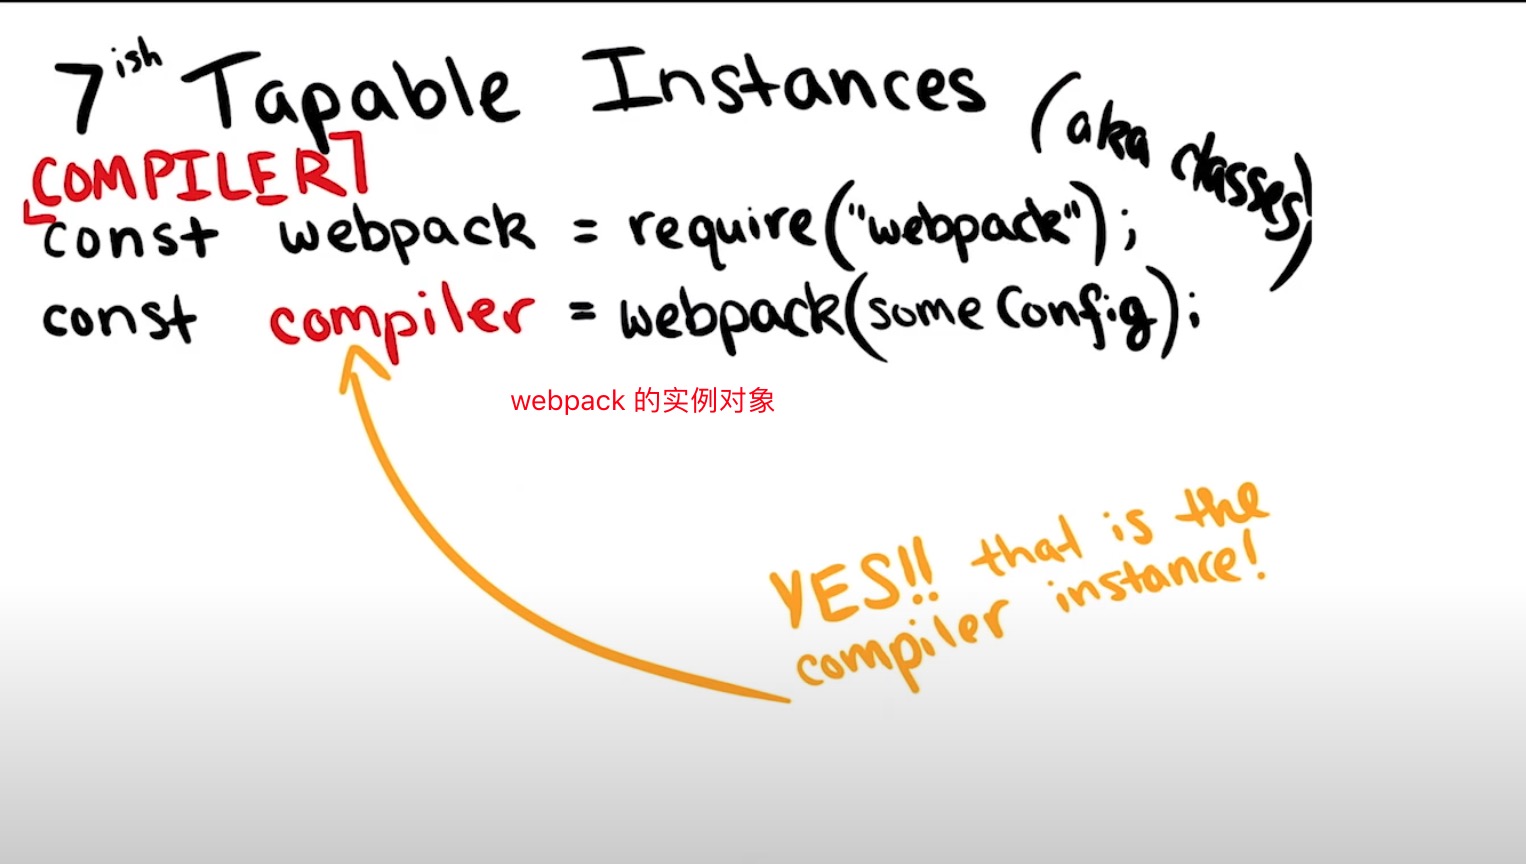 7ish Tapable Instances (aka classes)
COMPILER
const webpack = require("webpack");
const compiler = webpack(someConfig);
webpack 的实例对象
YES!! that is the
compiler instance!